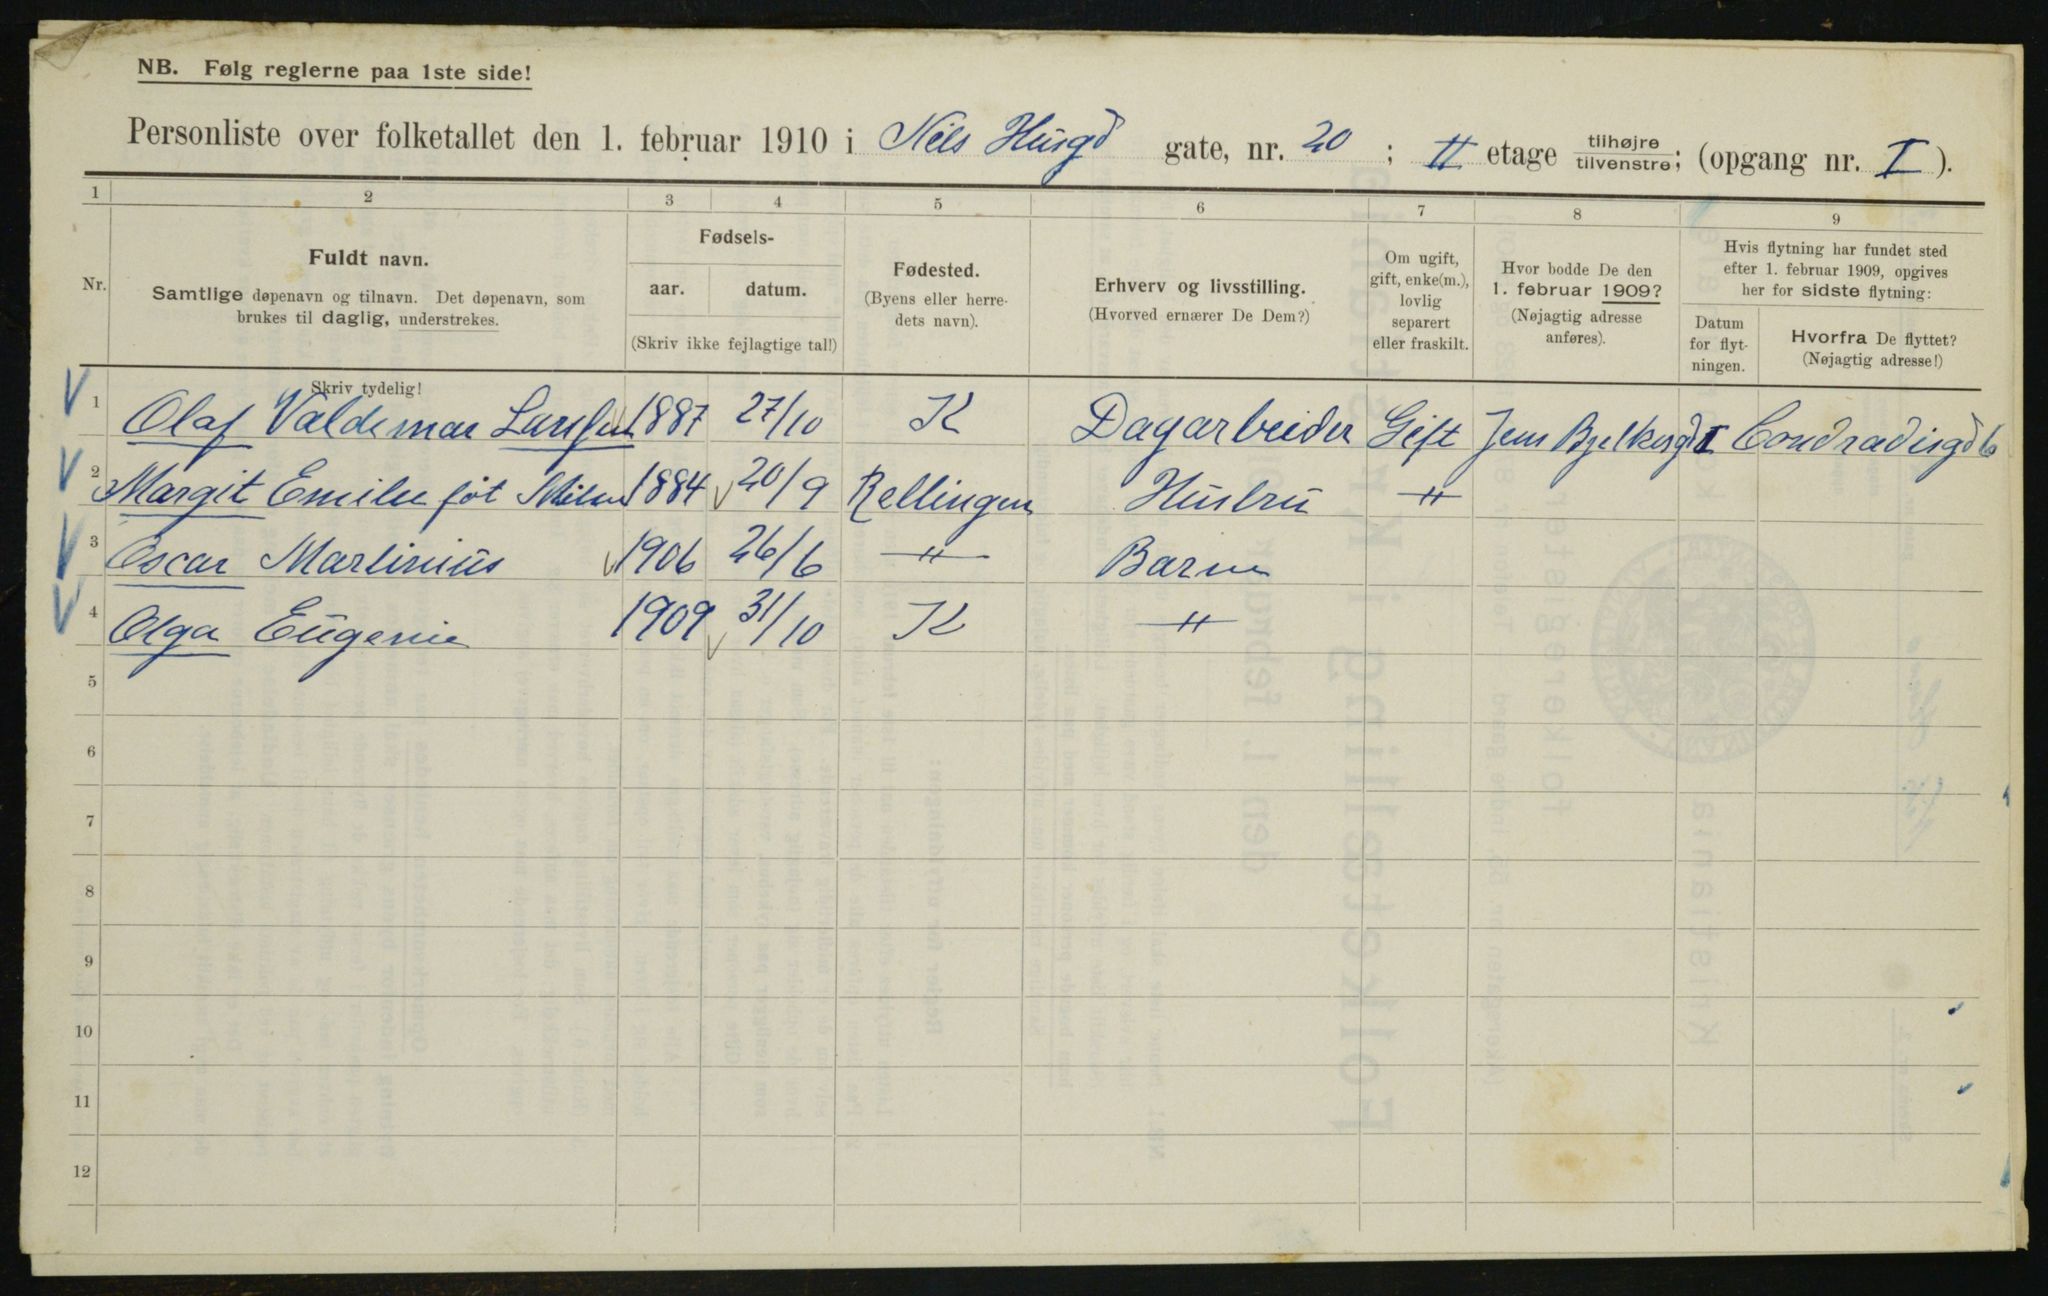 NB. Følg reglerne paa 1ste side!
Personliste over folketallet den 1. februar 1910 i Nils Husgd gate, nr. 20 ; II etage tilhøjre tilvenstre; (opgang nr. I ).
1 2 3 4 5 6 7 8 9
Nr.
Fuldt navn.
Samtlige døpenavn og tilnavn. Det døpenavn, som
brukes til daglig, understrekes.
Fødsels-
aar. datum.
(Skriv ikke fejlagtige tal!)
Fødested.
(Byens eller herre-
dets navn).
Erhverv og livsstilling.
(Hvorved ernærer De Dem?)
Om ugift,
gift, enke(m.),
lovlig
separert
eller fraskilt.
Hvor bodde De den
1. februar 1909?
(Nøjagtig adresse
anføres).
Hvis flytning har fundet sted
efter 1. februar 1909, opgives
her for sidste flytning:
Datum
for flyt-
ningen.
Hvorfra De flyttet?
(Nøjagtig adresse!)
Skriv tydelig!
1 Olaf Valdemar Larssen 1887 27/10 K Dagarbeider Gift Jens Bjelkesgd Condradisgd 6
2 Margit Emilie føt 1884 20/9 Rellingen Hustru "
3 Oscar Martinius 1906 26/6 " Barn
4 Olga Eugenie 1909 31/10 K "
5
6
7
8
9
10
11
12